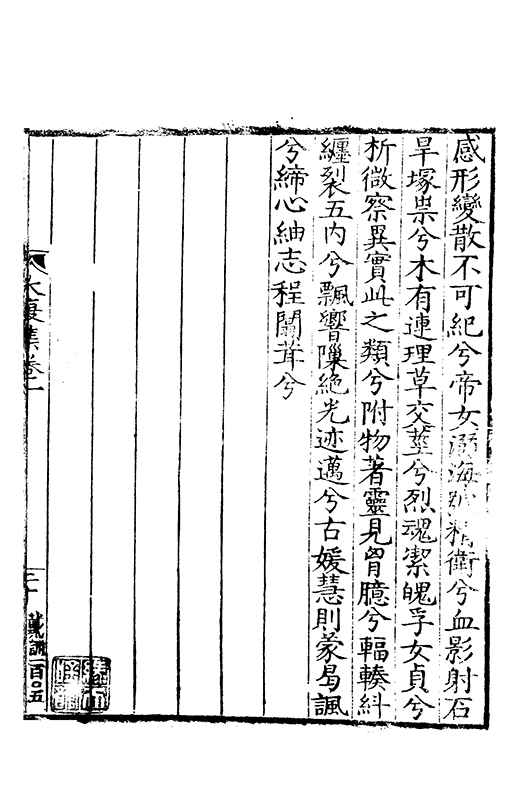 感形變散不可紀兮帝女溺海號精衛兮血影射石
旱塚祟兮木有連理草交莖兮烈魂潔魄孚女貞兮
析微察異實此之類兮附物著靈見胷臆兮輻輳糾
纏裂五内兮飄響隟絶光迹邁兮古媛慧則蒙曷諷
兮締心紬志程闒茸兮
大復集卷一
二十
百〇五